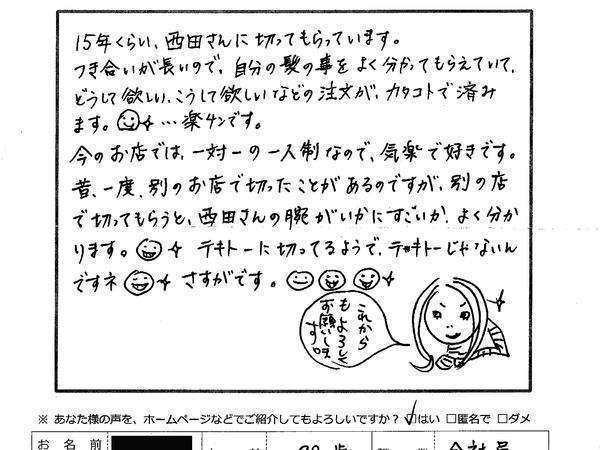 15年くらい、西田さんに切ってもらっています。
つき合いが長いので、自分の髪の事をよく分かってもらえていて、
どうして欲しい、こうして欲しいなどの注文が、カタコトで済み
ます。…楽チンです。
今のお店では、一対一の一人制なので、気楽で好きです。
昔、一度、別のお店で切ったことがあるのですが、別の店
で切ってもらうと、西田さんの腕がいかにすごいか、よく分か
ります。 テキトーに切ってるようで、テキトーじゃないん
ですネ さすがです。
これから
もよろしく
お願いしま
す。
※ あなた様の声を、ホームページなどでご紹介してもよろしいですか？ ☑はい □匿名で □ダメ
お名前